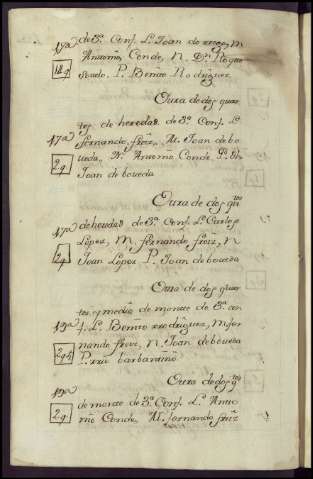 de 3ª. Conf. L. Joan de
Antonio, Conde, N. D. Roque
P. Benito Rodrigez.
Otra de dos quar
tos de heredad de 3ª. Conf. L.
17ª
fernando, froiz, M. Joan de bo
2q
veda, N. Antonio Conde, P. di
Joan de boveda
Otra de dos qtos
17ª
de heredad de 3ª. Conf. L. Carlos
López, M. fernando froiz, N
2q
Joan López P. Joan de boveda
Otra de dos quar
tos y medio de monte de 3ª. con
19ª
f. L. Benito rrodrigez, M. fer
2q
nando froiz, N. Joan de boveda
P. rrio barbantiño
Otra de dos qtos
19ª
de monte de 3ª. Conf. L. Anto
2q
nio Conde, M. fernando froiz